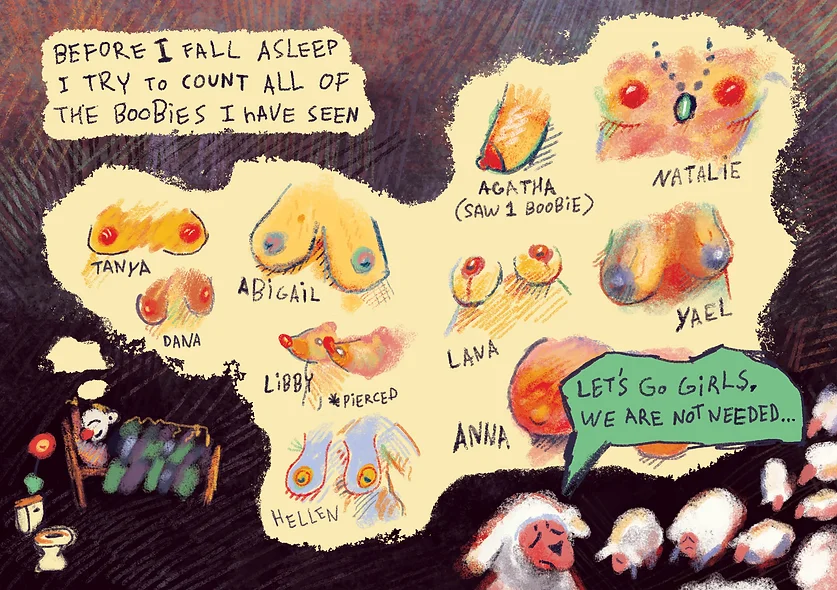 BEFORE I FALL ASLEEP
I TRY To COUNT ALL OF
THE BooBiES I hAVE SEEN
AGATHA
(SAW 1 BOOBiE)
NATALiE
TANYA
ABiGAiL
DANA
LANA
YAEL
LiBBY
*PiERCED
ANNA
HELLEN
LET'S Go GiRLS,
WE ARE NOT NEEDED...